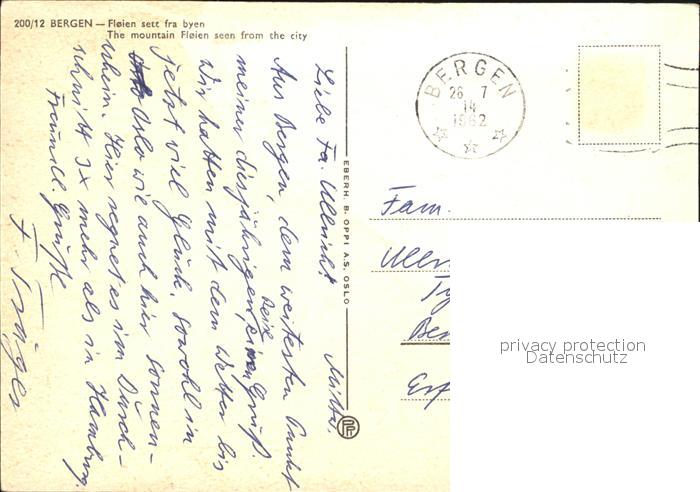 200/12 BERGEN — Fløien sett fra byen
The mountain Fløien seen from the city
BERGEN
26 7
14
1962
EBERH. B. OPPI A.S. OSLO
Liebe Fa. Ullrich!
Aus Bergen, dem weitesten Punkt
meiner diesjährigen Reise einen Gruß.
Wir hatten mit dem Wetter bis
jetzt viel Glück. Sowohl in
Oslo wie auch hier Sonnen-
schein. Hier regnet es im Durch-
schnitt 3x mehr als in Hamburg.
Freundl. Grüße
F.
Fam.
Ullr
privacy protection
Datenschutz